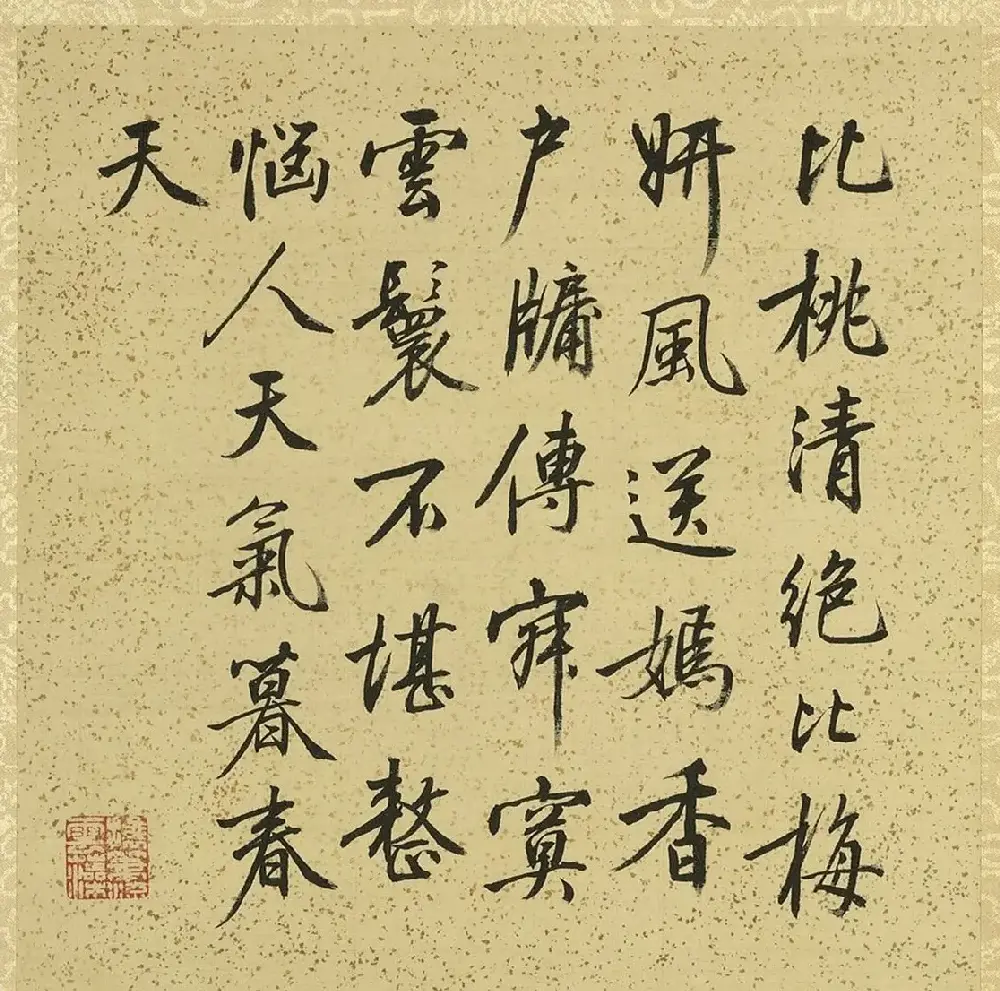 比桃清绝比梅
妍風送嫣香
户牖傳寂寞
雲鬟不堪整
惱人天氣暮春
天